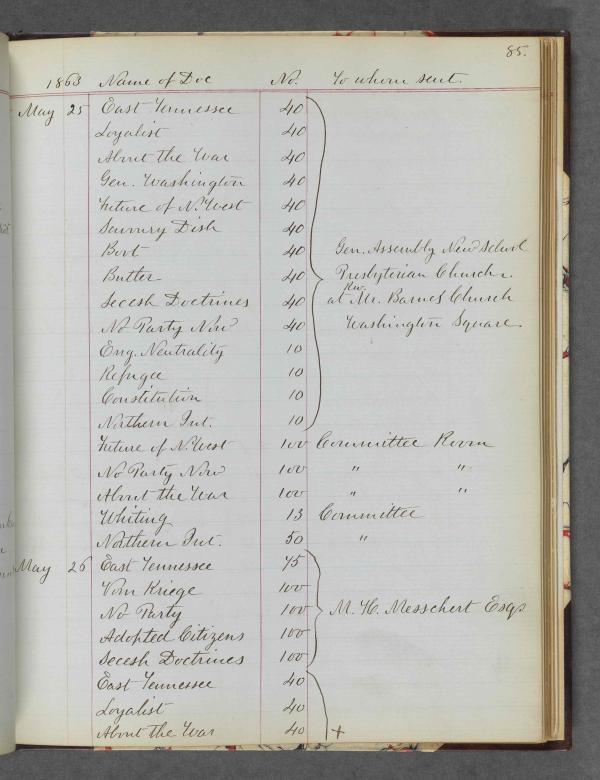 85.
1863 Name of Doc No. To whom sent.
May 25 East Tennessee 40
Loyalist 40
About the War 40
Gen. Washington 40
Future of N. West 40
Savoury Dish 40
Boot 40 Gen. Assembly New School
Butler 40 Presbyterian Church.
Secesh Doctrines 40 at Rev. Mr. Barnes Church
No Party Now 40 Washington Square.
Eng. Neutrality 10
Refugee 10
Constitution 10
Northern Int. 10
Future of N. West 100 Committee Room
No Party Now 100 " "
About the War 100 " "
Whiting 13 Committee
Northern Int. 50 "
May 26 East Tennessee 75
Vom Kriege 100
No Party 100 M. H. Messchert Esq.
Adopted Citizens 100
Secesh Doctrines 100
East Tennessee 40
Loyalist 40
About the War 40 +